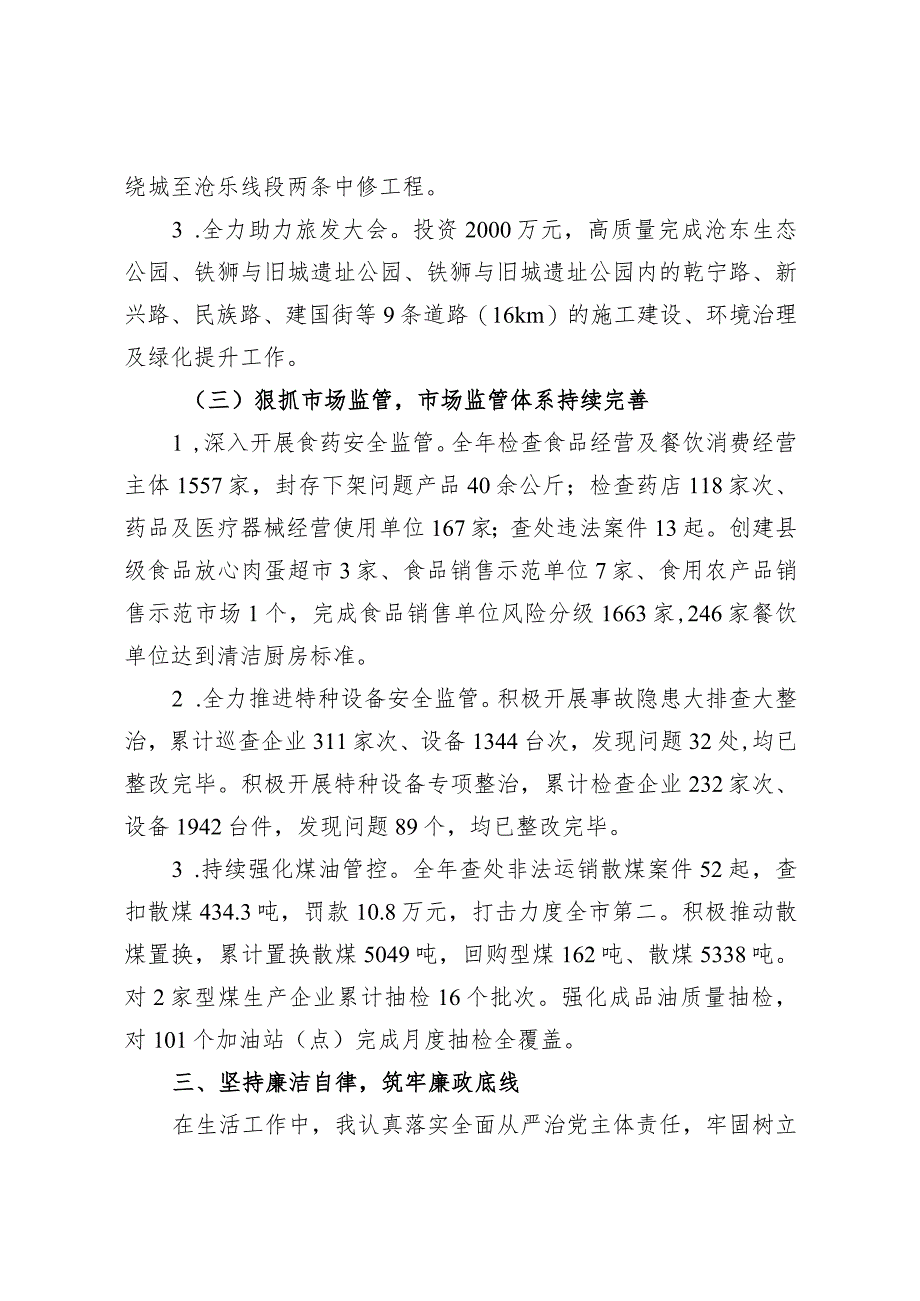 绕城至沧乐线段两条中修工程。
3 .全力助力旅发大会。投资 2000 万元，高质量完成沧东生态
公园、铁狮与旧城遗址公园、铁狮与旧城遗址公园内的乾宁路、新
兴路、民族路、建国街等 9 条道路（16km）的施工建设、环境治理
及绿化提升工作。
（三）狠抓市场监管，市场监管体系持续完善
1 ,深入开展食药安全监管。全年检查食品经营及餐饮消费经营
主体 1557 家，封存下架问题产品 40 余公斤；检查药店 118 家次、
药品及医疗器械经营使用单位 167 家；查处违法案件 13 起。创建县
级食品放心肉蛋超市 3 家、食品销售示范单位 7 家、食用农产品销
售示范市场 1 个，完成食品销售单位风险分级 1663 家,246 家餐饮
单位达到清洁厨房标准。
2 .全力推进特种设备安全监管。积极开展事故隐患大排查大整
治，累计巡查企业 311 家次、设备 1344 台次，发现问题 32 处,均已
整改完毕。积极开展特种设备专项整治，累计检查企业 232 家次、
设备 1942 台件，发现问题 89 个，均已整改完毕。
3 .持续强化煤油管控。全年查处非法运销散煤案件 52 起，查
扣散煤 434.3 吨，罚款 10.8 万元，打击力度全市第二。积极推动散
煤置换，累计置换散煤 5049 吨，回购型煤 162 吨、散煤 5338 吨。
对 2 家型煤生产企业累计抽检 16 个批次。强化成品油质量抽检，
对 101 个加油站（点）完成月度抽检全覆盖。
三、坚持廉洁自律，筑牢廉政底线
在生活工作中，我认真落实全面从严治党主体责任，牢固树立